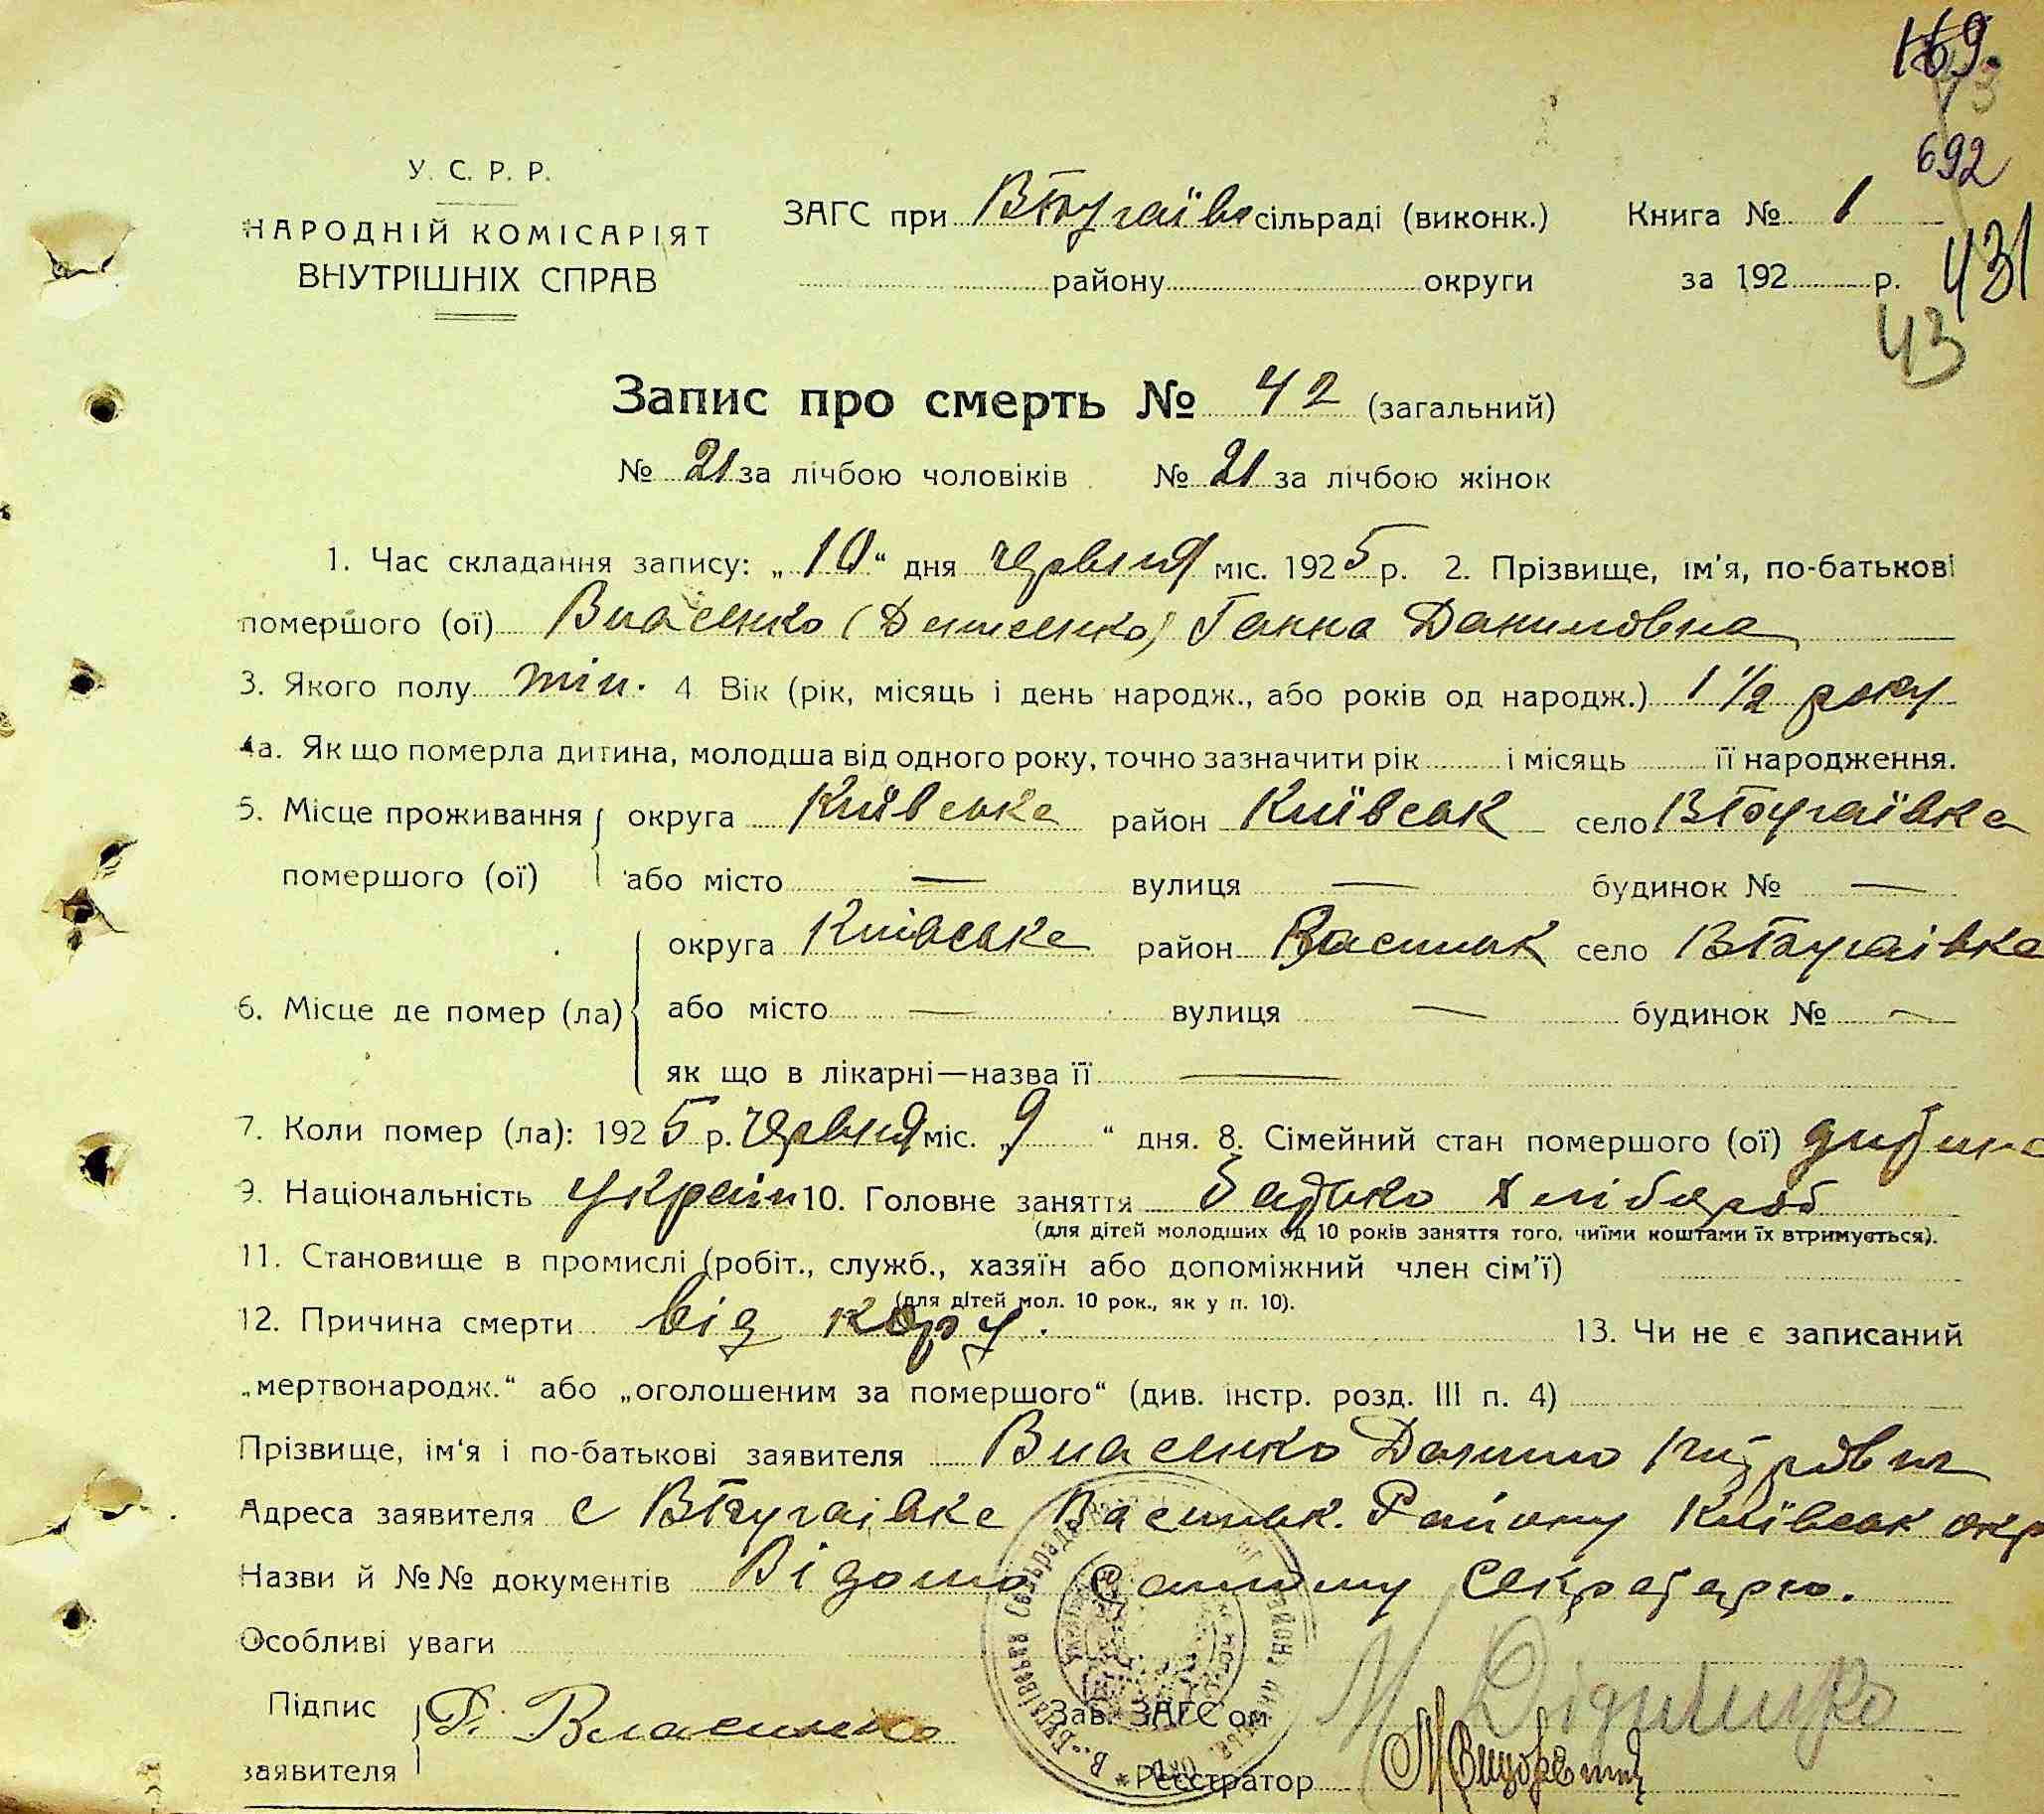 169.
73
692
У. С. Р. Р.
НАРОДНІЙ КОМІСАРІЯТ
ВНУТРІШНІХ СПРАВ
ЗАГС при сільраді (виконк.) Книга № 1
району округи за 192 р. 431
43
Запис про смерть № 42 (загальний)
№ 21 за лічбою чоловіків № 21 за лічбою жінок
1. Час складання запису: „10“ дня червня міс. 1925 р. 2. Прізвище, ім'я, по-батькові
помершого (ої) Власенко (Денисенко) Ганна Даниловна
3. Якого полу жін. 4 Вік (рік, місяць і день народж., або років од народж.) 1 1/2 року
4а. Як що померла дитина, молодша від одного року, точно зазначити рік і місяць її народження.
5. Місце проживання округа Київська район Київськ село
помершого (ої) або місто — вулиця — будинок № —
округа Київська район Васильк село
6. Місце де помер (ла) або місто — вулиця — будинок № —
як що в лікарні—назва її —
7. Коли помер (ла): 1925 р. червня міс. „9“ дня. 8. Сімейний стан помершого (ої) дитина
9. Національність україн 10. Головне заняття батько хлібороб
(для дітей молодших од 10 років заняття того, чиїми коштами їх втримується).
11. Становище в промислі (робіт., служб., хазяїн або допоміжний член сім'ї)
(для дітей мол. 10 рок., як у п. 10).
12. Причина смерти від кору. 13. Чи не є записаний
„мертвонародж.“ або „оголошеним за помершого“ (див. інстр. розд. III п. 4)
Прізвище, ім'я і по-батькові заявителя Власенко Данило
Адреса заявителя с Васильк. Району Київськ окр
Назви й №№ документів Відомо самому Секретарю.
Особливі уваги
Підпис
заявителя Власенко
Зав. ЗАГС'ом
Реєстратор